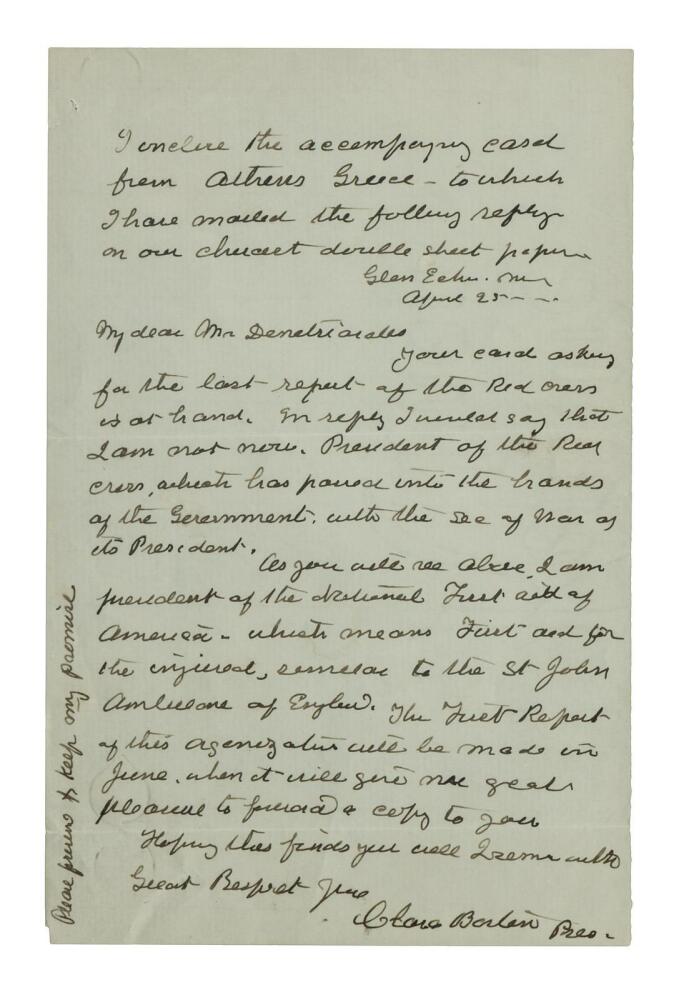 I enclose the accompanying card
from Athens Greece - to which
I have mailed the folling reply
on our chracet double sheet paper
Glen Echo. Md
April 25 - - .
My dear Mr
your card asking
for the last report of the Red Cross
is at hand. In reply I would say that
I am not now. President of the Red
Cross, which has passed into the hands
of the Government. with the Sec of War as
its President.
As you will see above, I am
president of the National First aid of
America - which means First aid for
the injured, similar to the St John
Ambulance of England. The First Report
of this organization will be made in
June. when it will give me great
pleasure to forward a copy to you
Hoping this finds you well I remain with
Great Respect
Clara Barton Pres.
Please preserve & keep my promise